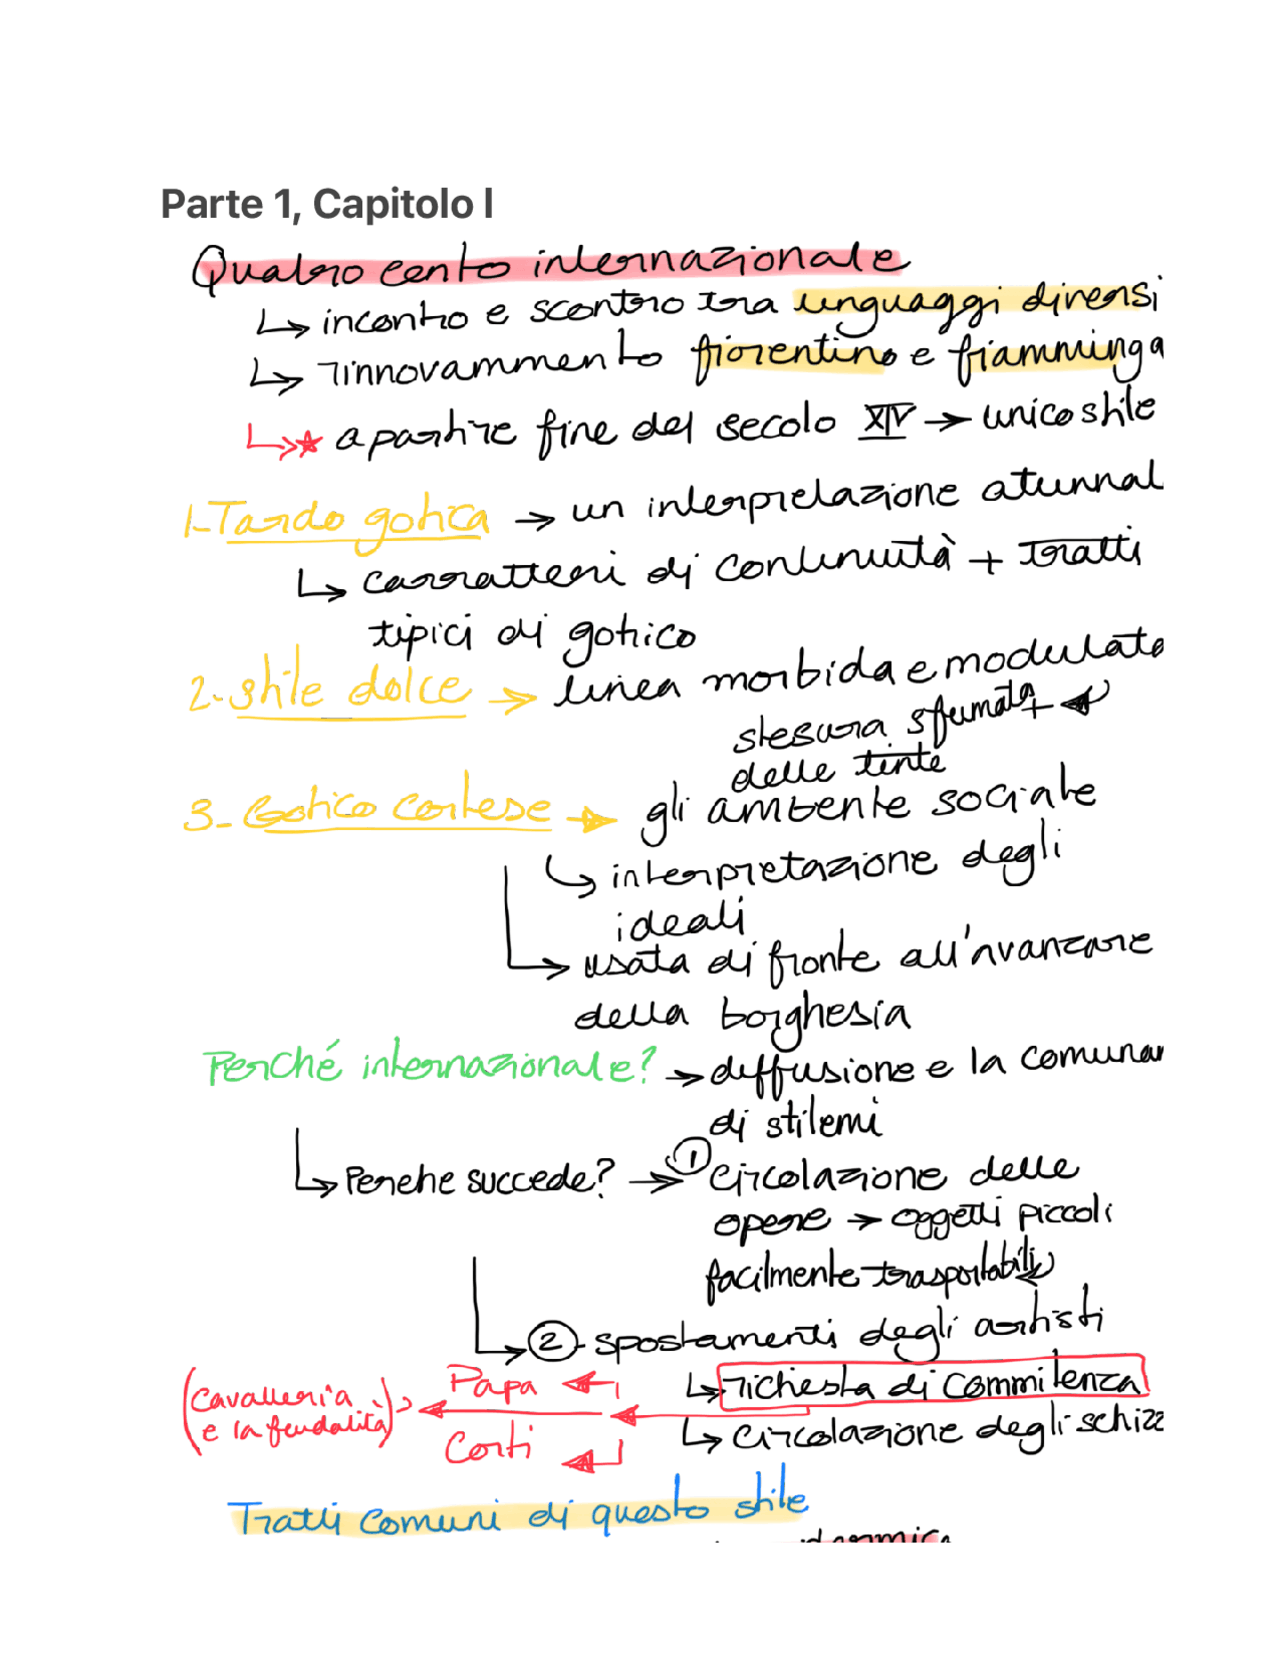 Parte 1, Capitolo I
Quatro cento internazionale
↳ incontro e scontro tra linguaggi diversi
↳ rinnovammento fiorentino e fiamminga
↳★ a partire fine del secolo XIV → unico stile
1-Tardo gotica → un interpretazione atunnal
↳ carratteri di continuità + tratti
tipici di gotico
2-stile dolce → linea morbida e modulata
stesura sfumata +
delle tinte
3-Gotico cortese → gli ambente sociale
↳ interpretazione degli
ideali
↳ usata di fronte all'avanzare
della borghesia
Perché internazionale? → diffusione e la comunan
di stilemi
↳ Perche succede? → ① circolazione delle
opere → oggetti piccoli
facilmente trasportabili
② - spostamenti degli artisti
Papa ← ↳ richiesta di committenza
(cavalleria
e la feudalità)
Corti ← ↳ circolazione degli schizz
Tratti comuni di questo stile